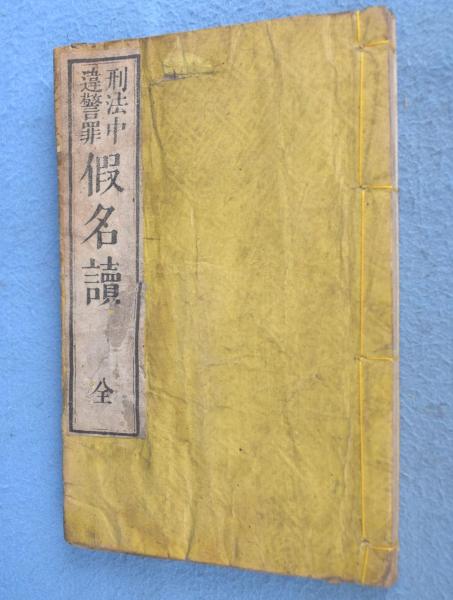 刑法中
違警罪
假名讀
全